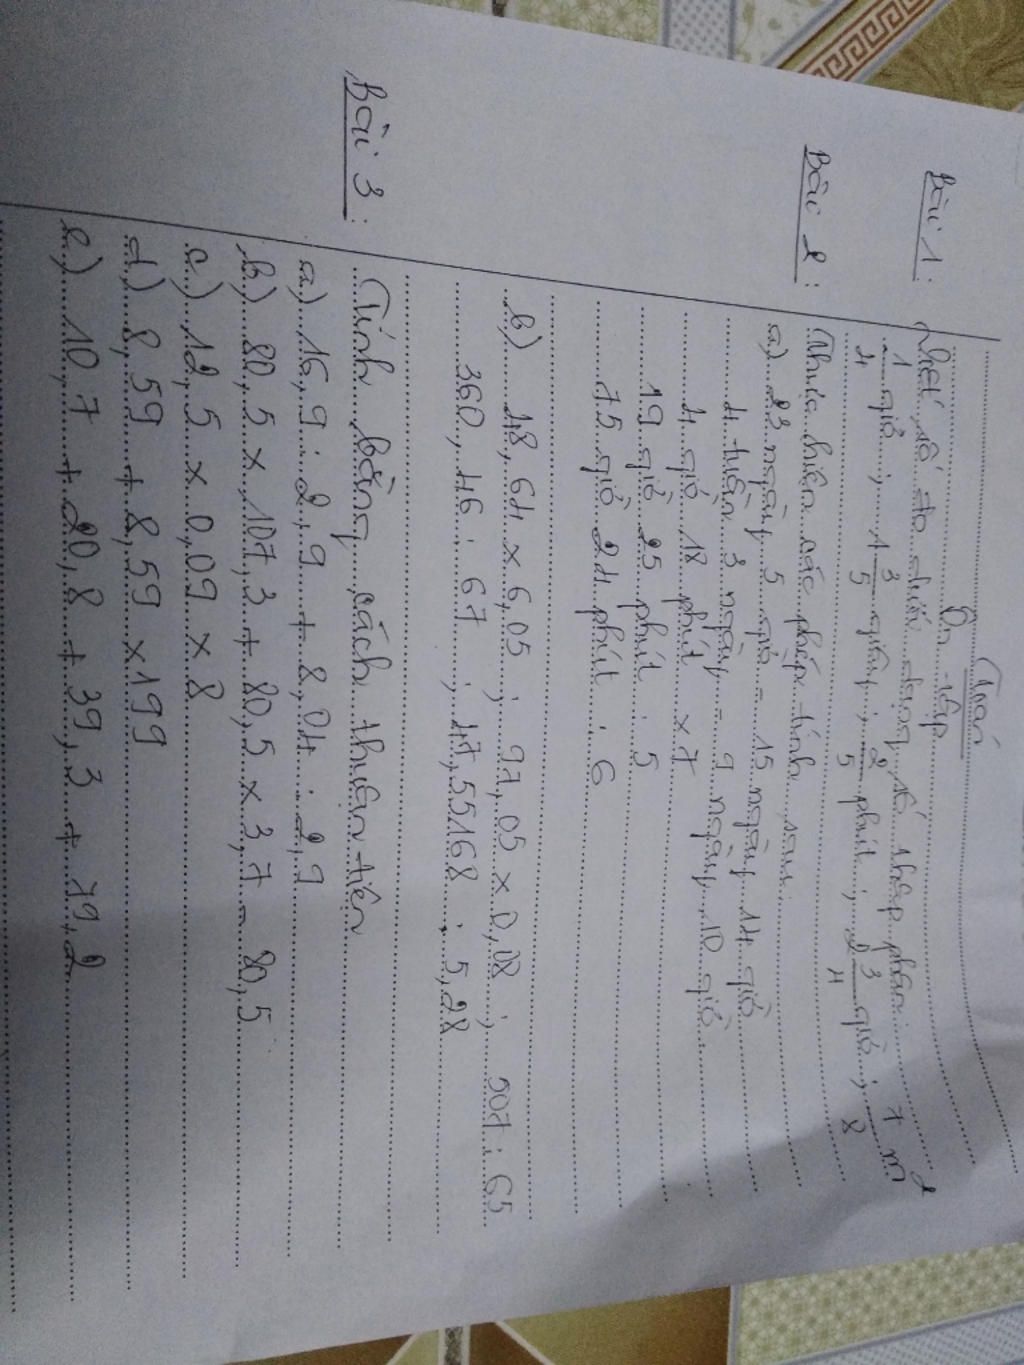 Toán
Ôn tập
Bài 1: Viết số đo dưới dạng số thập phân:
1/4 giờ ; 1 3/5 giây ; 2/5 phút ; 2 3/4 giờ ; 7/8 m²
Bài 2: Thực hiện các phép tính sau:
a) 23 ngày 5 giờ - 15 ngày 14 giờ
4 tuần 3 ngày - 9 ngày 10 giờ
4 giờ 18 phút × 7
19 giờ 25 phút : 5
75 giờ 24 phút : 6
b) 48,64 × 6,05 ; 97,05 × 0,08 ; 007 : 65
360,46 : 67 ; 47,55168 : 5,28
Bài 3: Tính bằng cách thuận tiện
a) 16,9 : 2,9 + 8,04 : 2,9
b) 80,5 × 107,3 + 80,5 × 3,7 - 80,5
c) 12,5 × 0,09 × 8
d) 8,59 + 8,59 × 199
e) 10,7 + 20,8 + 39,3 + 79,2